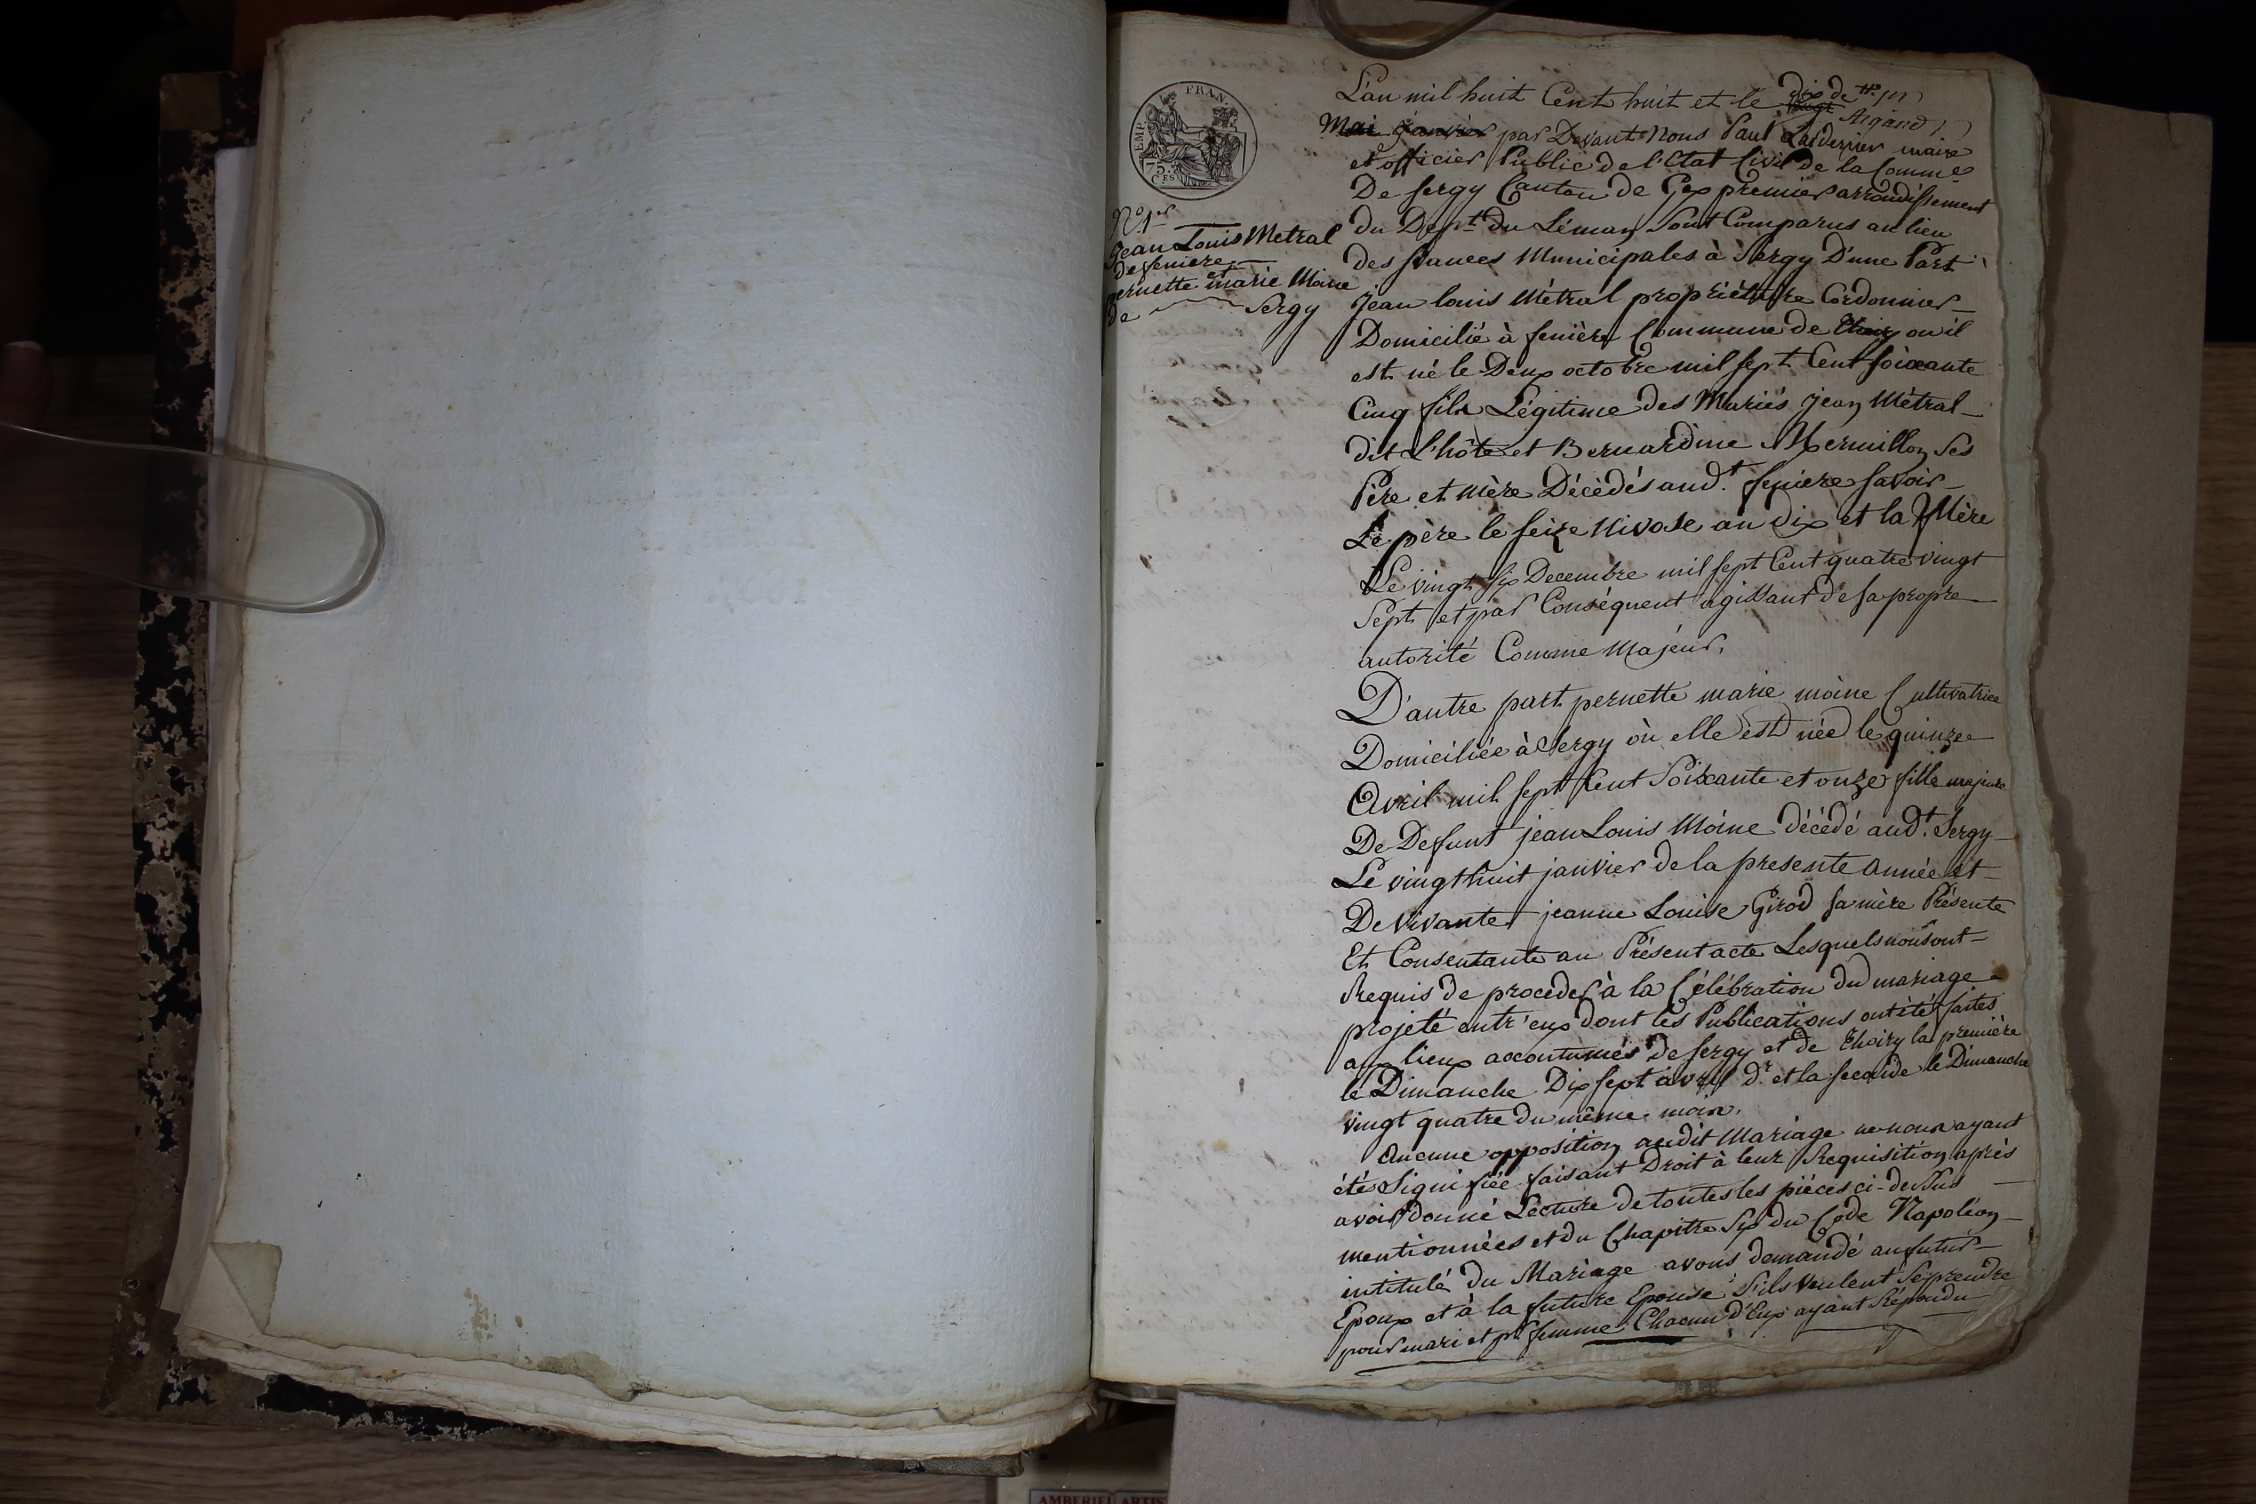 EMP. FRAN.
75.
CES
N.º 1er
Jean Louis Metral
de feniere
et
pernette marie Moine
de Sergy
L'an mil huit Cent huit et le dix de
Mai par Devant Nous Paul maire
et officier Public de l'Etat Civil de la Comme
De Sergy Canton de Gex premier arrondissement
du Dept du Léman Sont Comparus au lieu
des seances Municipales à Sergy D'une Part
Jean louis Métral propriétaire Cordonnier
Domicilié à fenière Commune de ou il
est né le Deux octobre mil sept Cent soixante
Cinq fils Légitime des Mariés Jean Métral
dit L'hôte et Bernardine Mermillon Ses
Père et mère Décédés aud.t feniere savoir
Le père le seize Nivose an dix et la Mère
Le vingt six Decembre mil sept Cent quatre vingt
Sept et par Conséquent agissant de sa propre
autorité Comme Majeur.
D'autre part pernette marie moine Cultivatrice
Domiciliée à Sergy où elle est née le quinze
Avril mil sept Cent Soixante et onze fille majeure
De Defunt jean Louis Moine décédé aud.t Sergy
Le vingt huit janvier de la presente année et
De vivante jeanne Louise Girod sa mère Présente
Et Consentante au Présent acte Lesquels nous ont
Requis de procéder à la Célébration du mariage
projeté entr'eux dont les Publications ont été faites
aux lieux accoutumés de Sergy et de Thoiry la première
le Dimanche Dix sept avril d.r et la seconde le Dimanche
vingt quatre du même mois.
Aucune opposition audit Mariage ne nous ayant
été Signifiée faisant Droit à leur Requisition après
avoir donné Lecture de toutes les pièces ci-dessus
mentionnées et du Chapitre Six du Code Napoléon
intitulé du Mariage avons demandé au futur
Epoux et à la future Epouse S'ils veulent Se prendre
pour mari et pr femme Chacun D'Eux ayant Répondu
AMBERIEU ARTIS